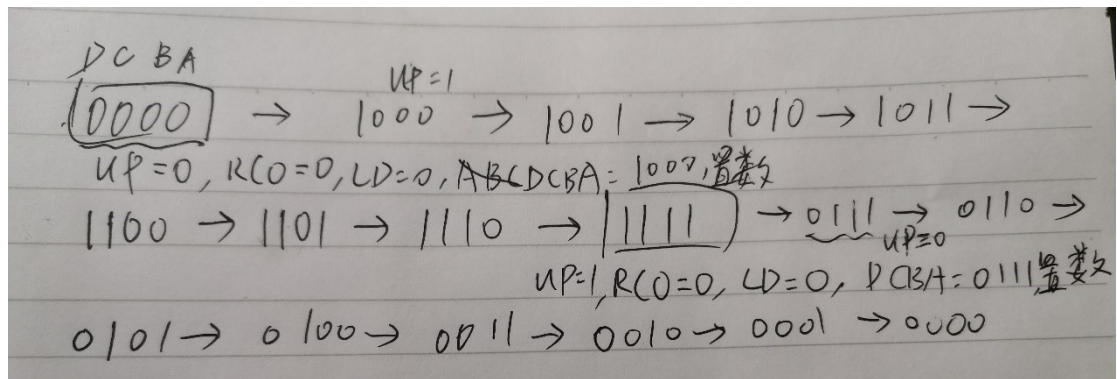 DCBA
UP=1
0000 → 1000 → 1001 → 1010 → 1011 →
UP=0, RCO=0, LD=0, ABCDCBA=1000,置数
1100 → 1101 → 1110 → 1111 → 0111 → 0110 →
UP=0
UP=1, RCO=0, LD=0, DCBA=0111,置数
0101 → 0100 → 0011 → 0010 → 0001 → 0000